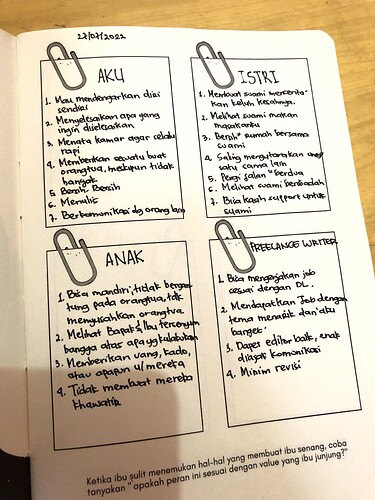 27/07/2022
AKU
1. Mau mendengarkan diri
sendiri
2. Menyelesaikan apa yang
ingin diselesaikan
3. Menata kamar agar selalu
rapi
4. Memberikan sesuatu buat
orangtua, meskipun tidak
banyak
5. Bersih-Bersih
6. Menulis
7. Berkomunikasi dg orang baru
ISTRI
1. Membuat suami mencerita-
kan keluh kesahnya.
2. Melihat suami makan
masakanku
3. Bersih" rumah bersama
suami
4. Saling mengutarakan
satu sama lain
5. Pergi jalan" berdua
6. Melihat suami beribadah
7. Bisa kasih support untuk
suami
ANAK
1. Bisa mandiri, tidak bergan-
tung pada orangtua, tdk
menyusahkan orangtua.
2. Melihat Bapak & Ibu tersenyum
bangga atas apa yg kulakukan
3. Memberikan uang, kado,
atau apapun u/ mereka
4. Tidak membuat mereka
khawatir
FREELANCE WRITER
1. Bisa mengerjakan job
sesuai dengan DL.
2. Mendapatkan Job dengan
tema menarik dan aku
banget.
3. Dapet editor baik, enak
diajak komunikasi
4. Minim revisi
Ketika ibu sulit menemukan hal-hal yang membuat ibu senang, coba
tanyakan "apakah peran ini sesuai dengan value yang ibu junjung?"